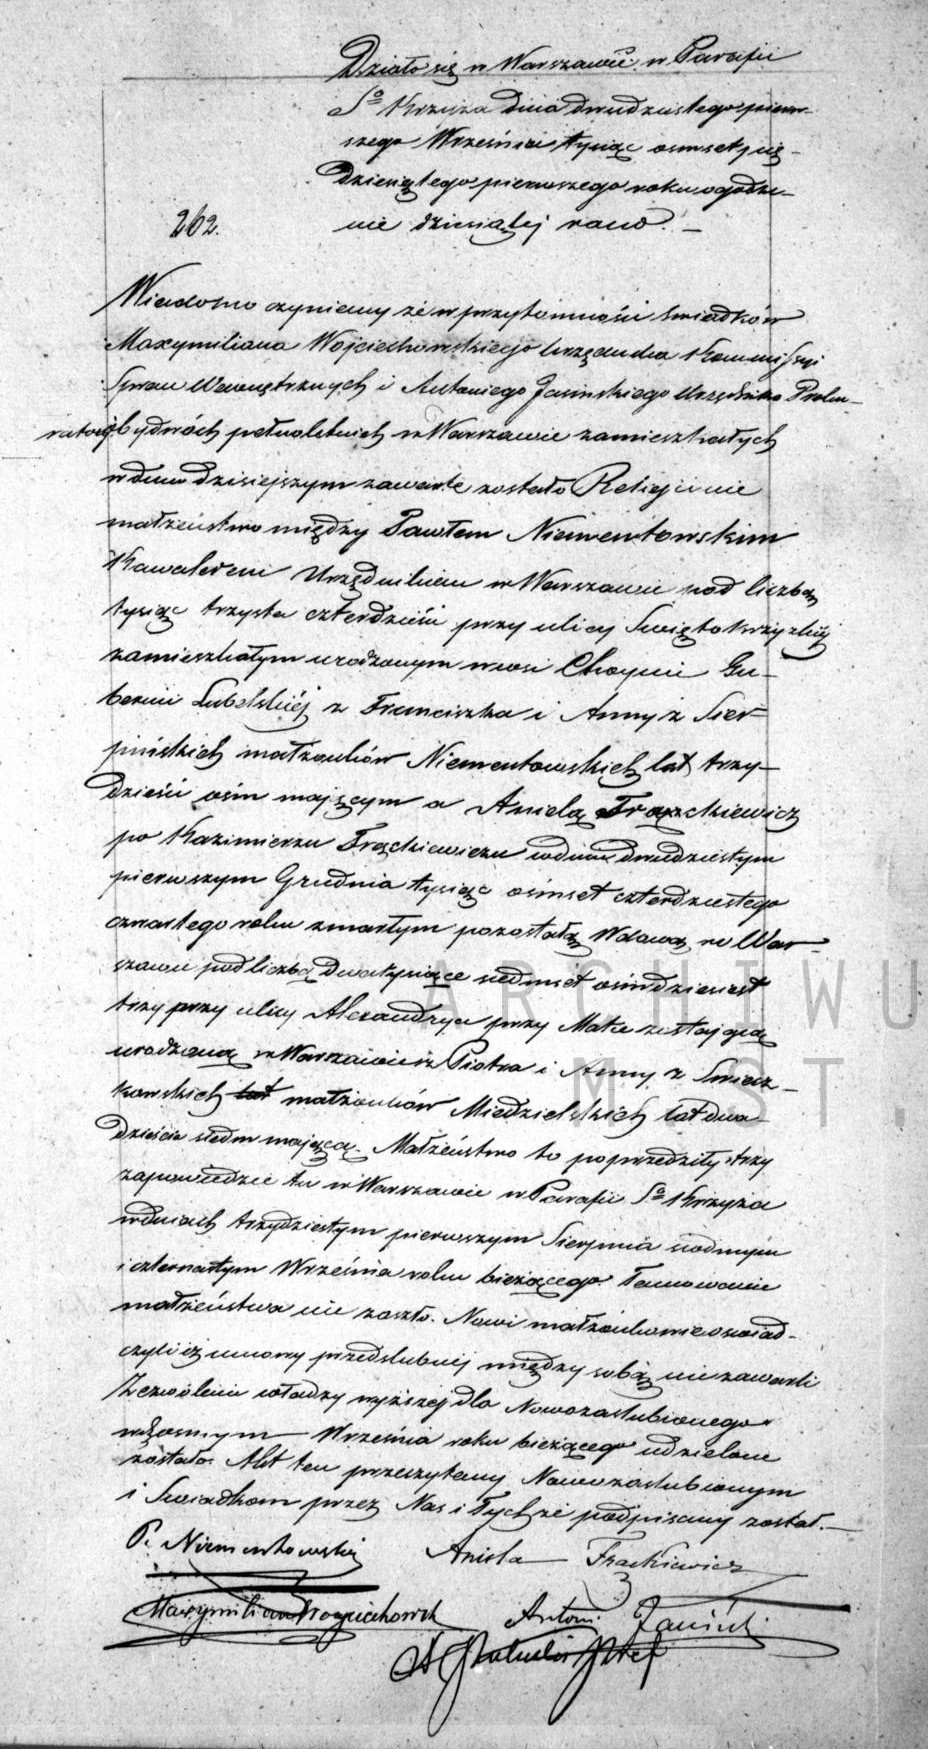 Działo się w Warszawie w Parafii
Sgo Krzyża dnia dwudziestego pierw-
szego Września tysiąc osmset pię-
dziesiątego pierwszego roku o godzi-
nie dziesiątej rano. —
262.
Wiadomo czyniemy że w przytomności świadków
Maxymiliana Wojciechowskiego Urzędnika Kommissyi
Spraw Wewnętrznych i Antoniego Jasinskiego Urzędnika Proku-
ratoryi obydwóch pełnoletnich w Warszawie zamieszkałych
w dniu dzisiejszym zawarte zostało Religijne
małżeństwo między Pawłem Niementowskim
Kawalerem Urzędnikiem w Warszawie pod liczbą
tysiąc trzysta czterdzieści przy ulicy Swiętokrzyzkiéj
zamieszkałym urodzonym we wsi Choynie Gu-
bernii Lubelskiéj z Franciszka i Anny z Sier-
pińskich małżonków Niementowskich lat trzy-
dzieści ośm mającym a Anielą Frąckiewicz
po Kazimierzu Frąckiewiczu w dniu dwudziestym
pierwszym Grudnia tysiąc ośmset czterdziestego
czwartego roku zmarłym pozostałą Wdową w War-
szawie pod liczbą Dwatysiące siedmset ośmdziesiąt
trzy przy ulicy Alexandrya przy Matce zostającą
urodzoną w Warszawie z Piotra i Anny z
kowskich lat małżonków Miedzielskich lat dwa-
dzieścia siedm mającą. Małżeństwo to poprzedziły trzy
zapowiedzie tu w Warszawie w Parafii Sgo Krzyża
w dniach trzydziestym pierwszym Sierpnia siodmym
i czternastym Września roku bieżącego Tamowanie
małżeństwa nie zaszło. Nowi małżonkowie oswiad-
czyli iż umowy przedslubnéj między sobą nie zawarli
Zezwolenie władzy wyższej dla Nowozaslubionego
w ósmym Września roku bieżącego udzielone
zostało. Akt ten przeczytany Nowozaslubionym
i Swiadkom przez Nas i Tychże podpisany został. —
P. Niementowski Aniela Frackiewicz
Maxymilian Woyciechowski Antoni Jasiński
ARCHIWU
M ST.